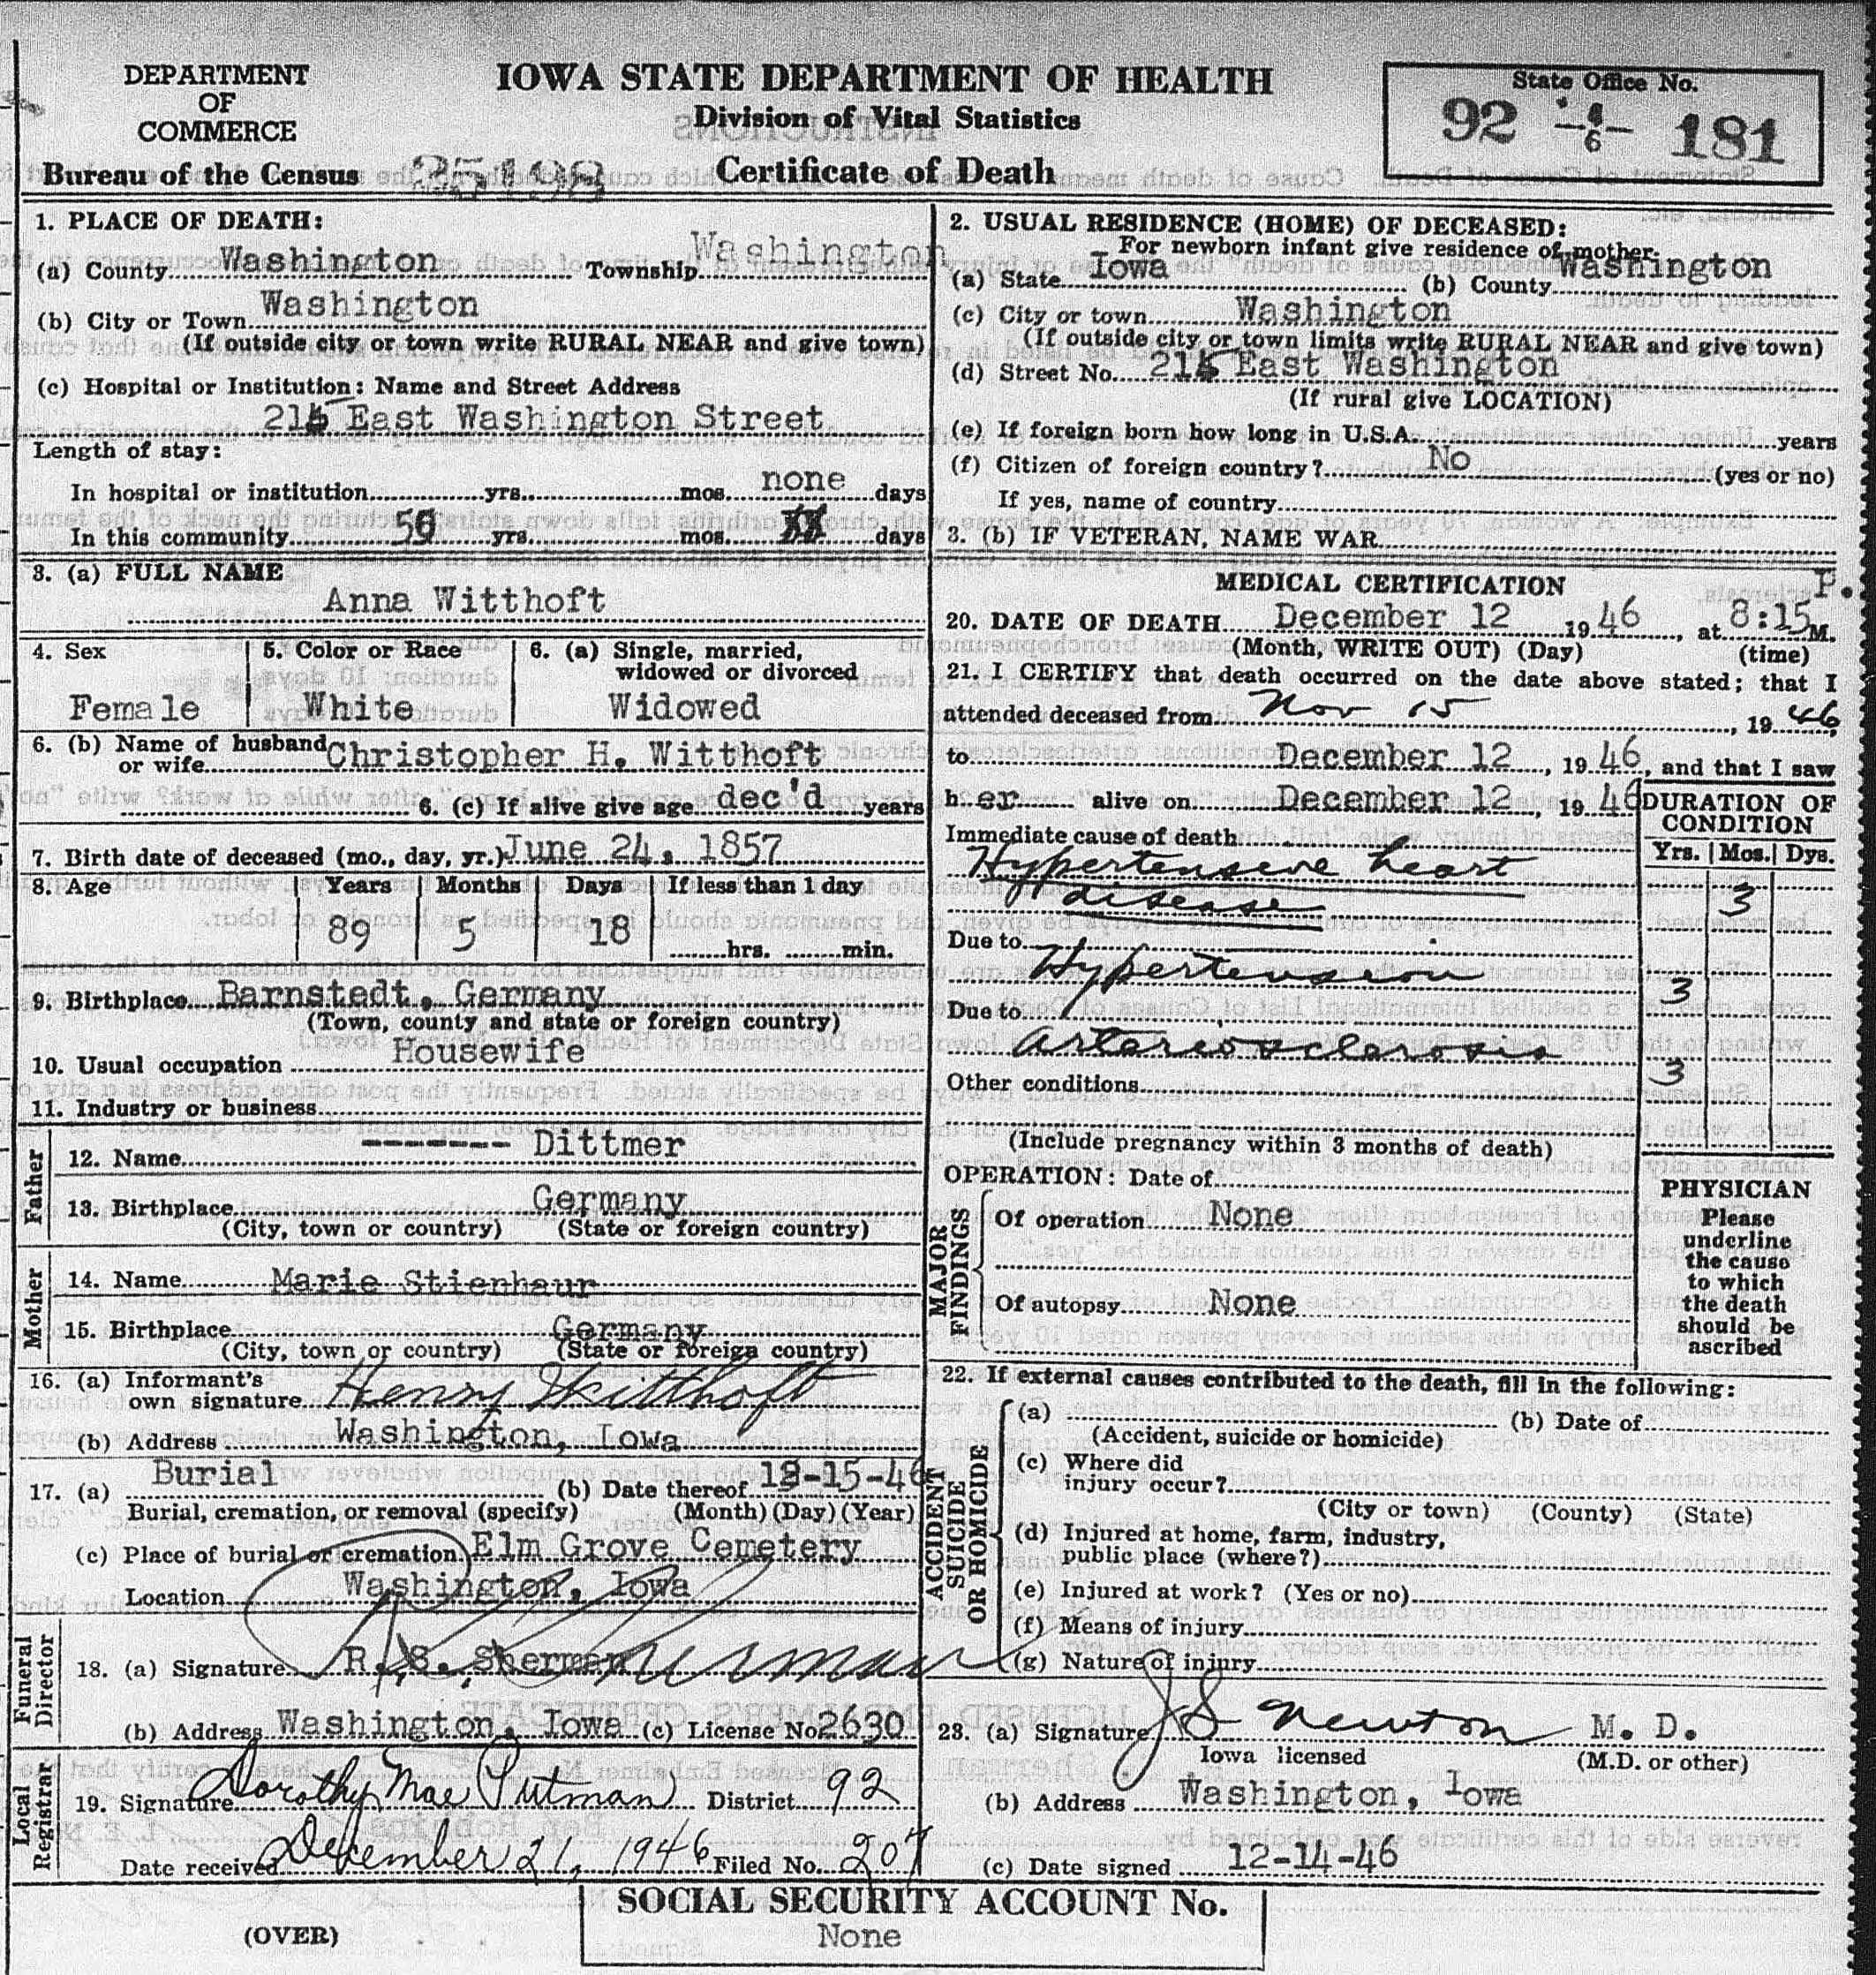 DEPARTMENT
OF
COMMERCE
Bureau of the Census 25198
IOWA STATE DEPARTMENT OF HEALTH
Division of Vital Statistics
Certificate of Death
State Office No.
92 -4/6- 181
1. PLACE OF DEATH:
(a) County Washington Township Washington
(b) City or Town Washington
(If outside city or town write RURAL NEAR and give town)
(c) Hospital or Institution: Name and Street Address
215 East Washington Street
Length of stay:
In hospital or institution yrs. mos. none days
In this community 50 yrs. mos. days
2. USUAL RESIDENCE (HOME) OF DECEASED:
For newborn infant give residence of mother.
(a) State Iowa (b) County Washington
(c) City or town Washington
(If outside city or town limits write RURAL NEAR and give town)
(d) Street No. 215 East Washington
(If rural give LOCATION)
(e) If foreign born how long in U.S.A. years
(f) Citizen of foreign country? No (yes or no)
If yes, name of country
3. (b) IF VETERAN, NAME WAR
3. (a) FULL NAME
Anna Witthoft
4. Sex
Female
5. Color or Race
White
6. (a) Single, married,
widowed or divorced
Widowed
6. (b) Name of husband
or wife Christopher H. Witthoft
6. (c) If alive give age dec'd years
7. Birth date of deceased (mo., day, yr.) June 24, 1857
8. Age Years Months Days If less than 1 day
89 5 18 hrs. min.
9. Birthplace Barnstedt, Germany
(Town, county and state or foreign country)
10. Usual occupation Housewife
11. Industry or business
Father
12. Name ------- Dittmer
13. Birthplace Germany
(City, town or country) (State or foreign country)
Mother
14. Name Marie Stienhaur
15. Birthplace Germany
(City, town or country) (State or foreign country)
16. (a) Informant's
own signature Henry Witthoft
(b) Address Washington, Iowa
17. (a) Burial (b) Date thereof 12-15-46
Burial, cremation, or removal (specify) (Month) (Day) (Year)
(c) Place of burial or cremation Elm Grove Cemetery
Location Washington, Iowa
Funeral
Director
18. (a) Signature R. S. Sherman
(b) Address Washington, Iowa (c) License No. 2630
Local
Registrar
19. Signature Dorothy Mae Putman District 92
Date received December 21, 1946 Filed No. 207
MEDICAL CERTIFICATION
20. DATE OF DEATH December 12 1946, at 8:15 P. M.
(Month, WRITE OUT) (Day) (time)
21. I CERTIFY that death occurred on the date above stated; that I
attended deceased from Nov 15, 1946,
to December 12, 1946, and that I saw
her alive on December 12, 1946
DURATION OF
CONDITION
Yrs. Mos. Dys.
Immediate cause of death
Hypertensive heart
disease 3
Due to
Hypertension 3
Due to
Arteriosclerosis 3
Other conditions
(Include pregnancy within 3 months of death)
OPERATION: Date of
MAJOR
FINDINGS
Of operation None
Of autopsy None
PHYSICIAN
Please
underline
the cause
to which
the death
should be
ascribed
22. If external causes contributed to the death, fill in the following:
ACCIDENT
SUICIDE
OR HOMICIDE
(a) (b) Date of
(Accident, suicide or homicide)
(c) Where did
injury occur?
(City or town) (County) (State)
(d) Injured at home, farm, industry,
public place (where?)
(e) Injured at work? (Yes or no)
(f) Means of injury
(g) Nature of injury
23. (a) Signature J S Newton M. D.
Iowa licensed (M.D. or other)
(b) Address Washington, Iowa
(c) Date signed 12-14-46
(OVER)
SOCIAL SECURITY ACCOUNT No.
None